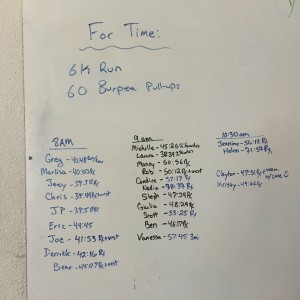 For Time:
6K Run
60 Burpee Pull-ups
8AM
Greg - 40:48
Marlisa - 40:07 Rx
Joey - 39:75
Chris - 39:44 Rx+vest
JP - 39:50 Rx
Eric - 44:45
Joe - 41:53 Rx+vest
Derrick - 42:16 Rx
Bear - 44:07 Rx+vest
9am
Michelle - 45:26
Laura - 38:39
Manny - 50:56 Rx
Rob - 50:12 Rx+vest
Candice - 37:17 Rx
Nadia - 38:37 Rx
Steph - 47:29 Rx
Giulia - 48:29 Rx
Scott - 53:25 Rx
Ben - 46:17 Rx
Vanessa - 57:45 3mi
10:30am
Jeanine - 56:18 Rx
Helen - 71:59 Rx
Clayton - 47:51 Rx+
Kristy - 49:26 Rx